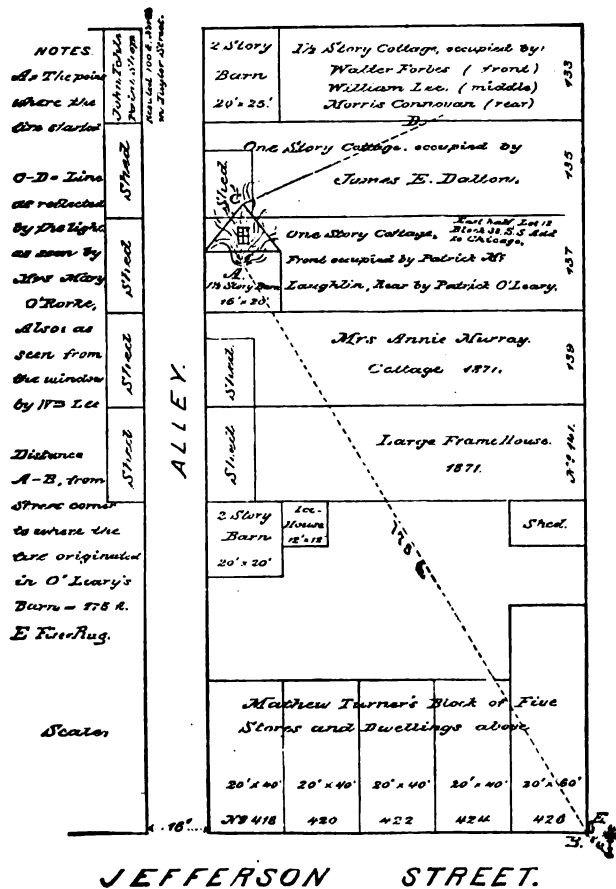 NOTES.
A = The point
where the
fire started
C-D = Line
as reflected
by the light
as seen by
Mrs Mary
O'Rorke,
Also: as
seen from
the window
by Wm Lee
Distance
A-B, from
Street corner
to where the
fire originated
in O'Leary's
Barn = 178 ft.
E Fire Plug.
Scale,
Paint Shop
Shed
Shed
Shed
Shed
ALLEY.
16'
2 Story
Barn
20' x 25'
1½ Story Cottage, occupied by:
Walter Forbes (front)
William Lee. (middle)
Morris Connovan (rear)
133
D.
Shed.
One Story Cottage. occupied by
James E. Dalton.
135
C
A
1½ Story Barn
16' x 20'
One Story Cottage,
East half Lot 12
to Chicago.
Front occupied by Patrick Mc
Laughlin, Rear by Patrick O'Leary.
137
Mrs Annie Murray.
Cottage 1871.
139
Shed.
Large Frame House.
1871.
No 141.
Shed
2 Story
Barn
20' x 20'
Ice-
House
12' x 12'
Shed.
178
Mathew Turner's Block of Five
Stores and Dwellings above
20' x 40' 20' x 40' 20' x 40' 20' x 40' 20' x 60'
No 418 420 422 424 426
E.
B.
JEFFERSON STREET.